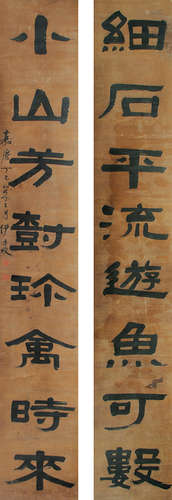 細石平流遊魚可數
小山芳樹珎禽時來
嘉慶丁巳
伊秉綬